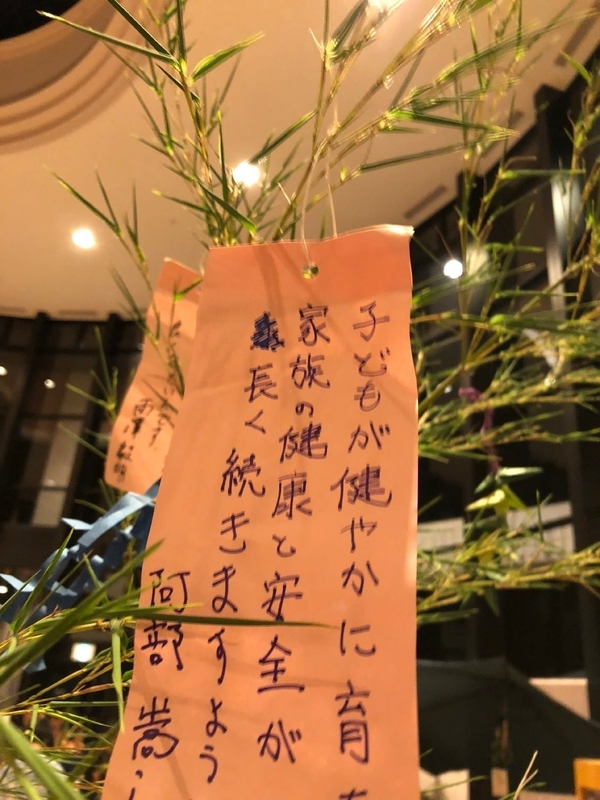 子どもが健やかに育
家族の健康と安全が
長く続きますよう
阿部 嵩